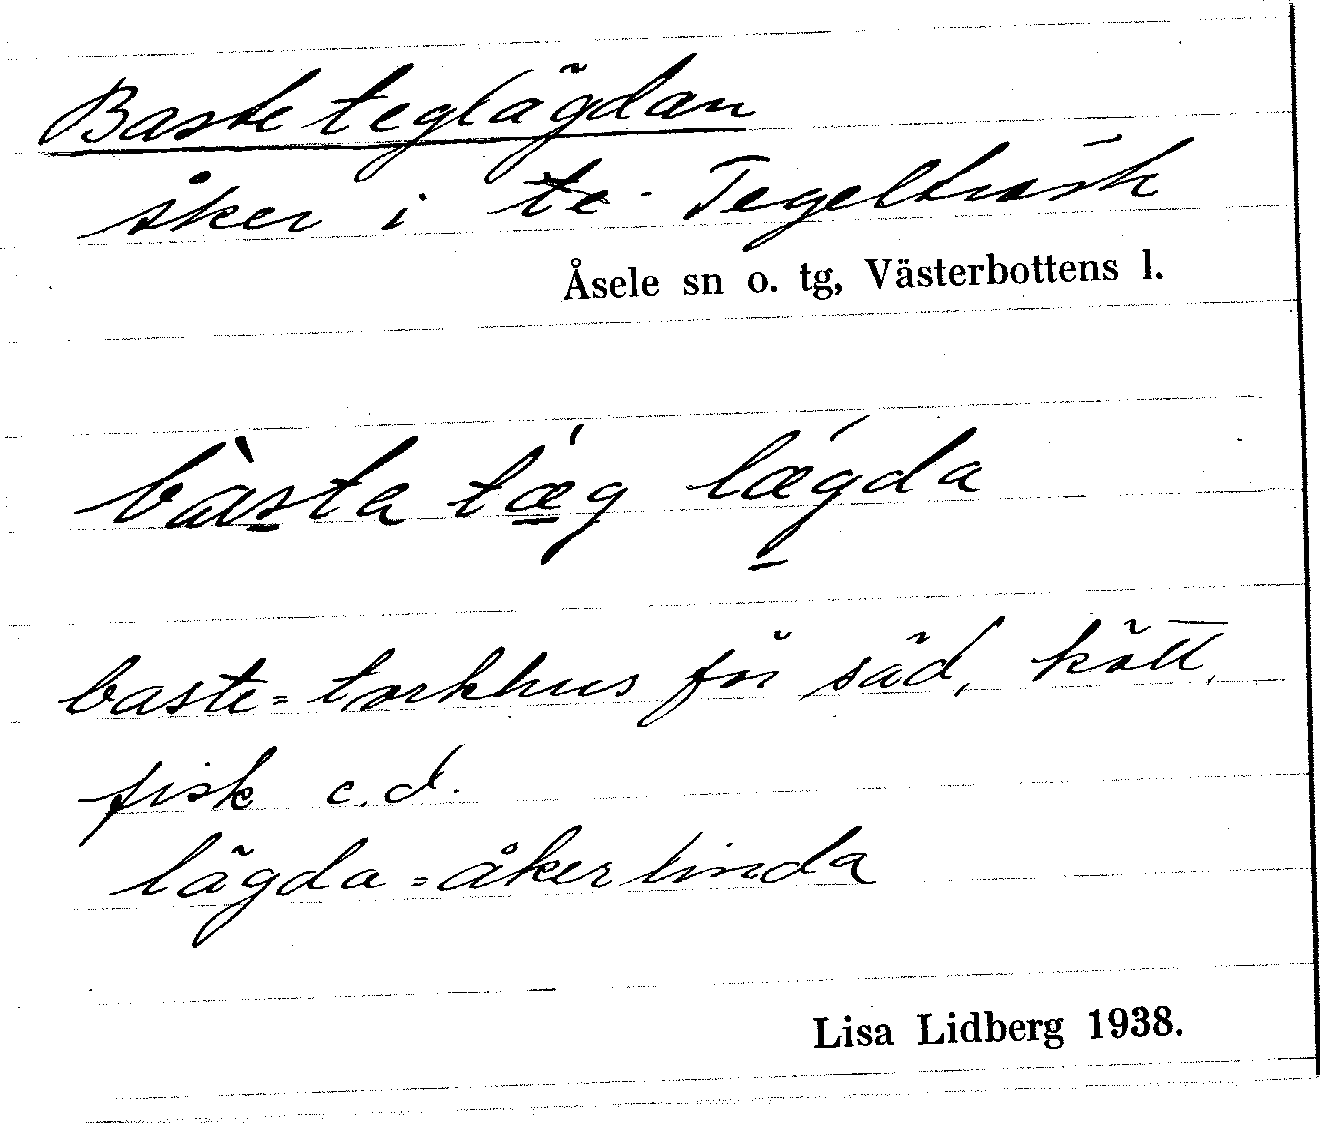 Basteteglägdan
åker i te. Tegelträsk
Åsele sn o. tg, Västerbottens l.
bàsta tǽg lǽgda
baste = torkhus för säd, kött,
fisk e.d.
lägda = åker linda
Lisa Lidberg 1938.